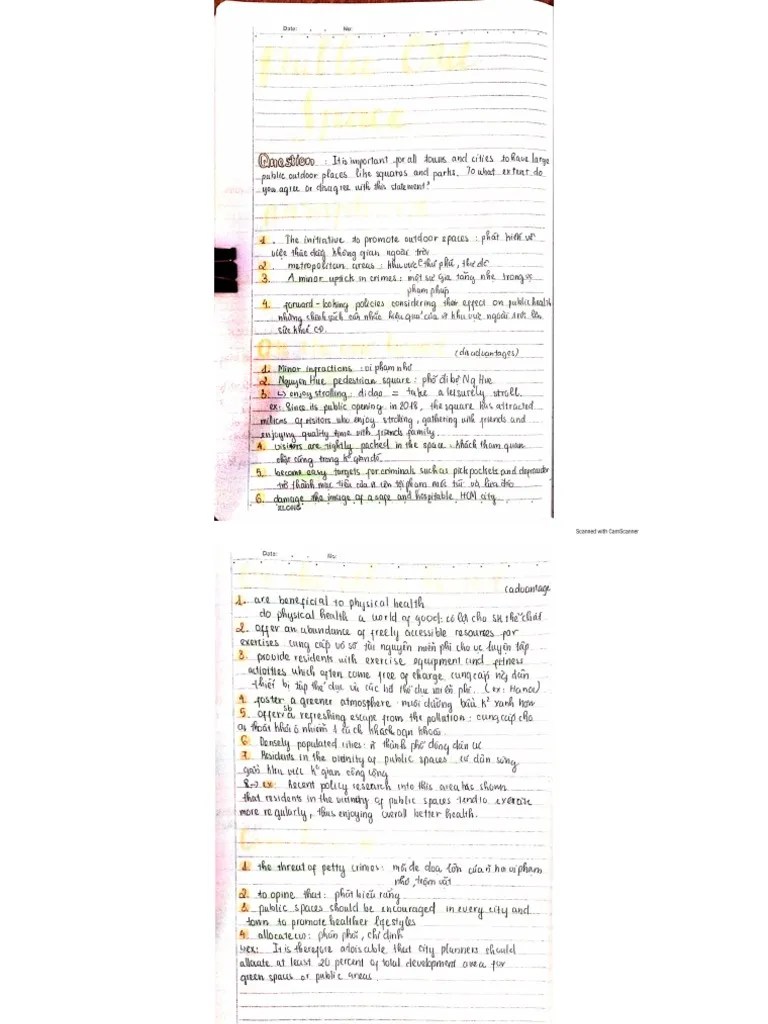 Date: No:
Public
Space
Question : It is important for all towns and cities to have large
public outdoor places like squares and parks. To what extent do
you agree or disagree with this statement?
1. The initiative to promote outdoor spaces : phát biểu về
việc thúc đẩy không gian ngoài trời
2. metropolitan areas : khu vực thủ phủ, thủ đô
3. A minor uptick in crimes : một sự gia tăng nhẹ trong vc
phạm pháp
4. forward-looking policies considering their effect on public health
những chính sách cân nhắc hiệu quả của khu vực ngoài trời lên
sức khoẻ
(disadvantages)
1. Minor infractions : vi phạm nhỏ
2. Nguyen Hue pedestrian square : phố đi bộ Ng Hue
3. enjoy strolling di dạo = take a leisurely stroll.
ex: Since its public opening in 2018, the square has attracted
millions of visitors who enjoy stroling, gathering with friends and
enjoying quality time with friends family.
4. visitors are tightly packed in the space : khách tham quan
chật cứng trong k gian đó.
5. become easy targets for criminals such as pickpockets and
trở thành mục tiêu của tội phạm móc túi và lừa đảo
6. damage the image of a safe and hospitable HCM city
Scanned with CamScanner
Date: No:
(advantage
1. are beneficial to physical health
do physical health a world of good: có lợi cho sk thể chất
2. offer an abundance of freely accessible resources for
exercises cung cấp vô số tài nguyên miễn phí cho vc luyện tập
3. provide residents with exercise equipment and fitness
activities which often come free of charge cung cấp ng dân
thiết bị tập thể dục và các hđ thể dục miễn phí. (ex: Hanoi)
4. foster a greener atmosphere nuôi dưỡng bầu k² xanh hơn
5. offer sb a refreshing escape from the pollution : cung cấp cho
ai thoát khỏi ô nhiễm 1 cách
6. Densely populated cities : thành phố đông dân cư
7. Residents in the vicinity of public spaces cư dân sống
gần khu vực k gian công cộng
8. ex Recent policy research into this area has shown
that residents in the vicinity of public spaces tend to exercise
more regularly, thus enjoying overall better health.
1. the threat of petty crimes : mối đe doạ lớn của vi phạm
nhỏ, trộm vặt
2. to opine that : phát biểu rằng
3. public spaces should be encouraged in every city and
town to promote healthier lifestyles
4. allocate : phân phối, chỉ định
ex: It is therefore advisable that city planners should
allocate at least 20 percent of total development area for
green spaces or public areas.